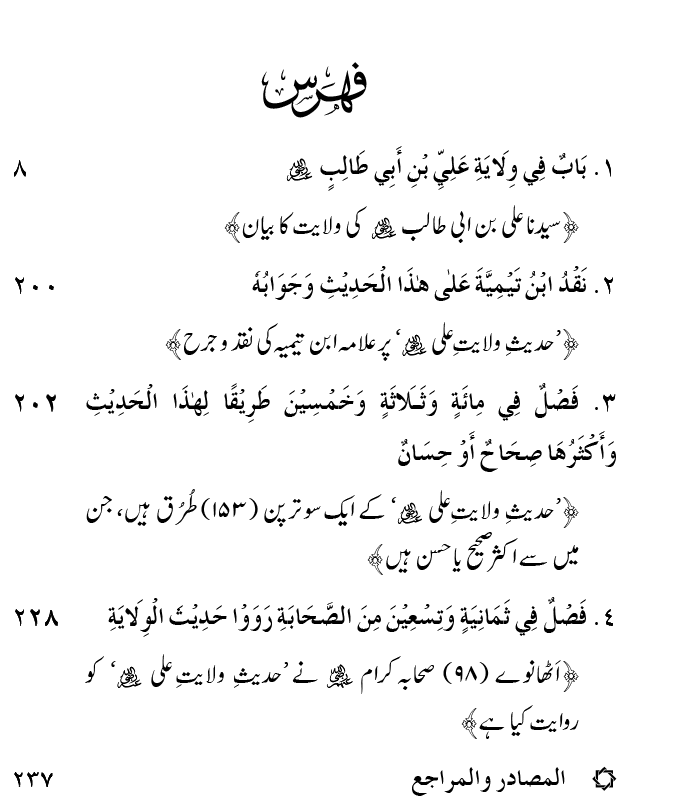 فہرس
١. بَابٌ فِي وِلَايَةِ عَلِيِّ بْنِ أَبِي طَالِبٍ ٨
﴿سیدنا علی بن ابی طالب کی ولایت کا بیان﴾
٢. نَقْدُ ابْنُ تَيْمِيَّةَ عَلٰى هٰذَا الْحَدِيْثِ وَجَوَابُهُ ٢٠٠
﴿’حدیثِ ولایتِ علی ‘ پر علامہ ابن تیمیہ کی نقد و جرح﴾
٣. فَصْلٌ فِي مِائَةٍ وَثَلَاثَةٍ وَخَمْسِيْنَ طَرِيْقًا لِهٰذَا الْحَدِيْثِ ٢٠٢
وَأَكْثَرُهَا صِحَاحٌ أَوْ حِسَانٌ
﴿’حدیثِ ولایتِ علی ‘ کے ایک سو ترپن (۱۵۳) طُرُق ہیں، جن
میں سے اکثر صحیح یا حسن ہیں﴾
٤. فَصْلٌ فِي ثَمَانِيَةٍ وَتِسْعِيْنَ مِنَ الصَّحَابَةِ رَوَوْا حَدِيْثَ الْوِلَايَةِ ٢٢٨
﴿اَٹھانوے (۹۸) صحابہ کرام نے ’حدیثِ ولایتِ علی ‘ کو
روایت کیا ہے﴾
المصادر والمراجع ٢٣٧